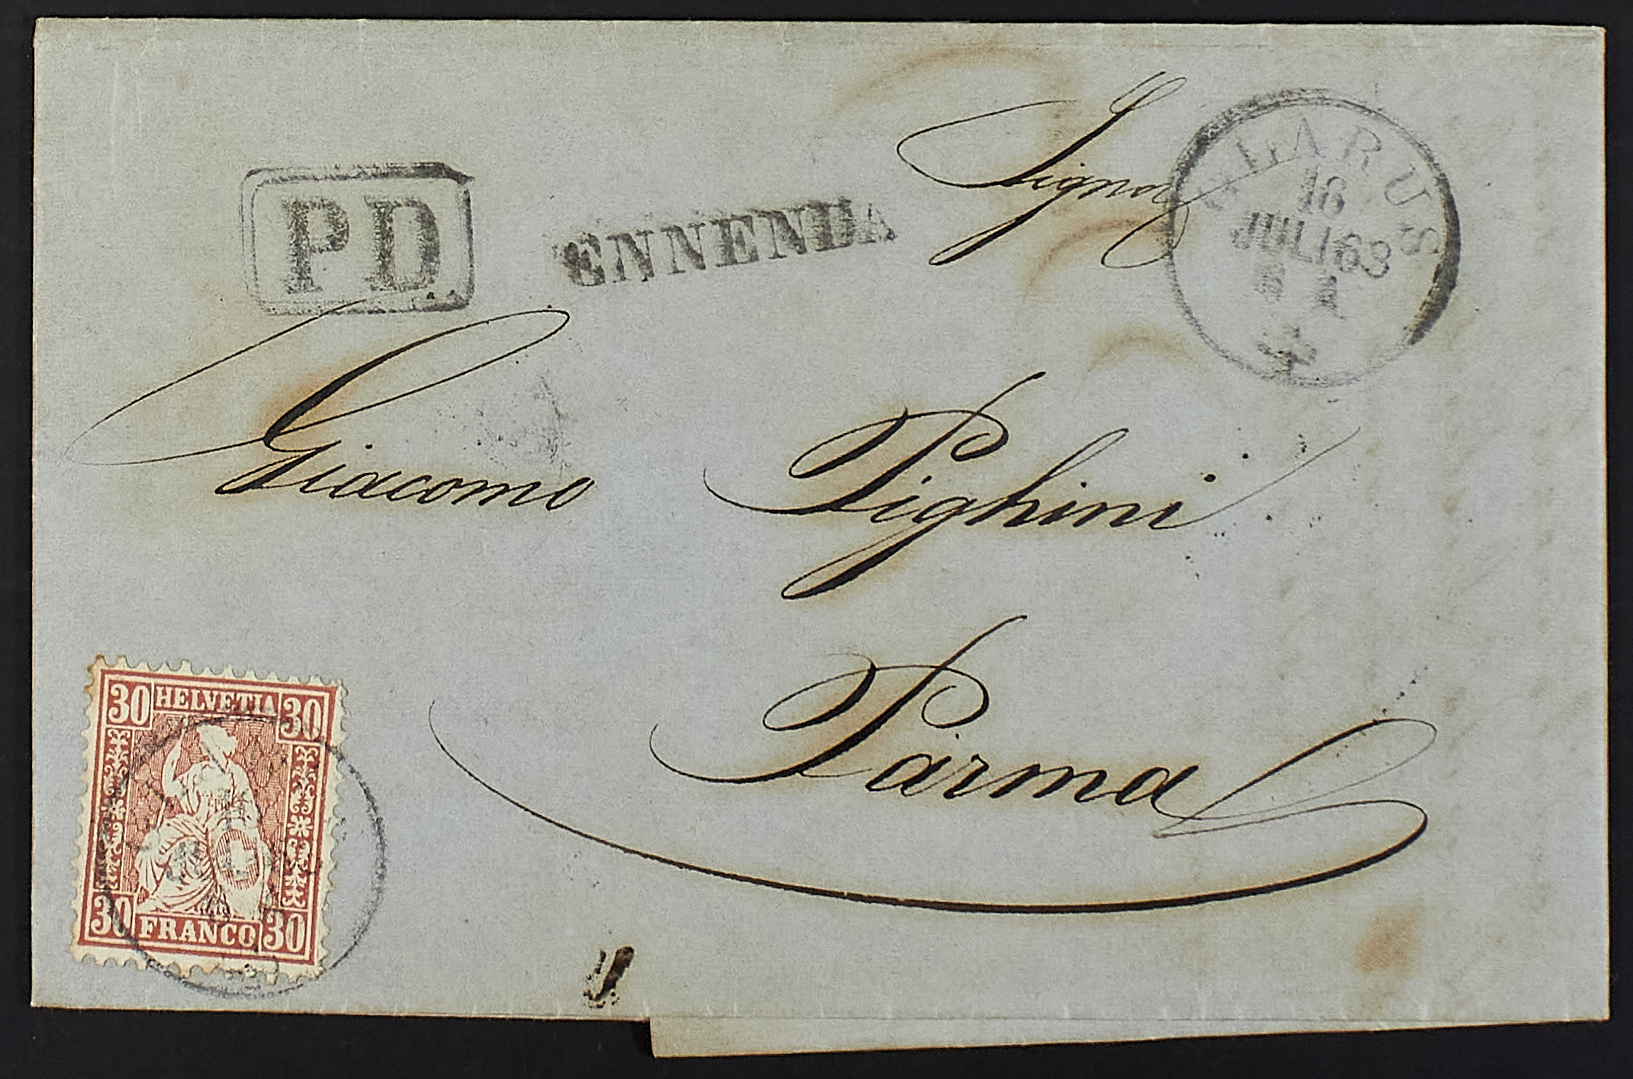 Signor
GLARUS
16
JULI 63
PD
ENNENDA
Giacomo Pighini
Parma
30 HELVETIA 30
30 FRANCO 30